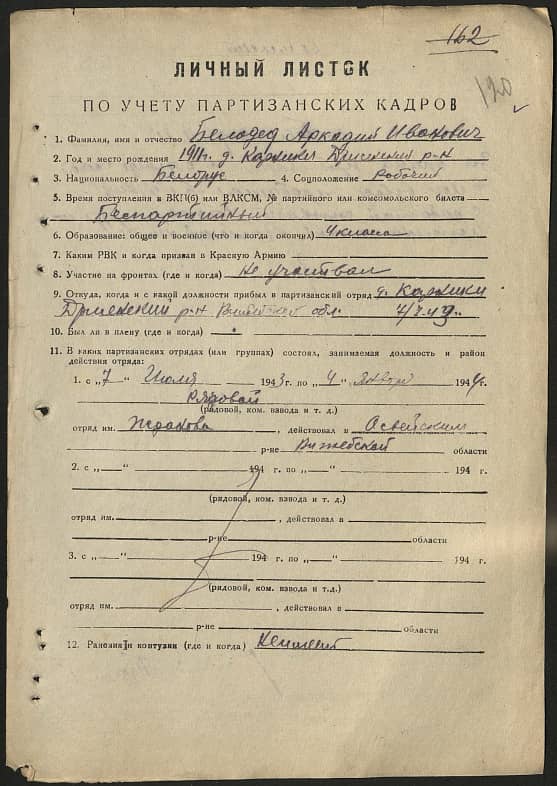 162
120
ЛИЧНЫЙ ЛИСТОК
ПО УЧЕТУ ПАРТИЗАНСКИХ КАДРОВ
1. Фамилия, имя и отчество Белодед Аркадий Иванович
2. Год и место рождения 1911 г. д. Каржики Дрисенский р-н
3. Национальность Белорус 4. Соцположение рабочий
5. Время поступления в ВКП(б) или ВЛКСМ, № партийного или комсомольского билета
Беспартийный
6. Образование: общее и военное (что и когда окончил) 4 класса
7. Каким РВК и когда призван в Красную Армию
8. Участие на фронтах (где и когда) не участвал
9. Откуда, когда и с какой должности прибыл в партизанский отряд д. Каржики
Дрисенский р-н обл.
10. Был ли в плену (где и когда)
11. В каких партизанских отрядах (или группах) состоял, занимаемая должность и район
действия отряда:
1. с „7“ Июля 1943 г. по „4“ января 1944 г.
Рядовой
(рядовой, ком. взвода и т. д.)
отряд им. , действовал в Освейским
р-не Витебской области
2. с „ “ 194 г. по „ “ 194 г.
(рядовой, ком. взвода и т. д.)
отряд им. , действовал в
р-не области
3. с „ “ 194 г. по „ “ 194 г.
(рядовой, ком. взвода и т.д.)
отряд им. , действовал в
р-не области
12. Ранения и контузии (где и когда) Неимеет